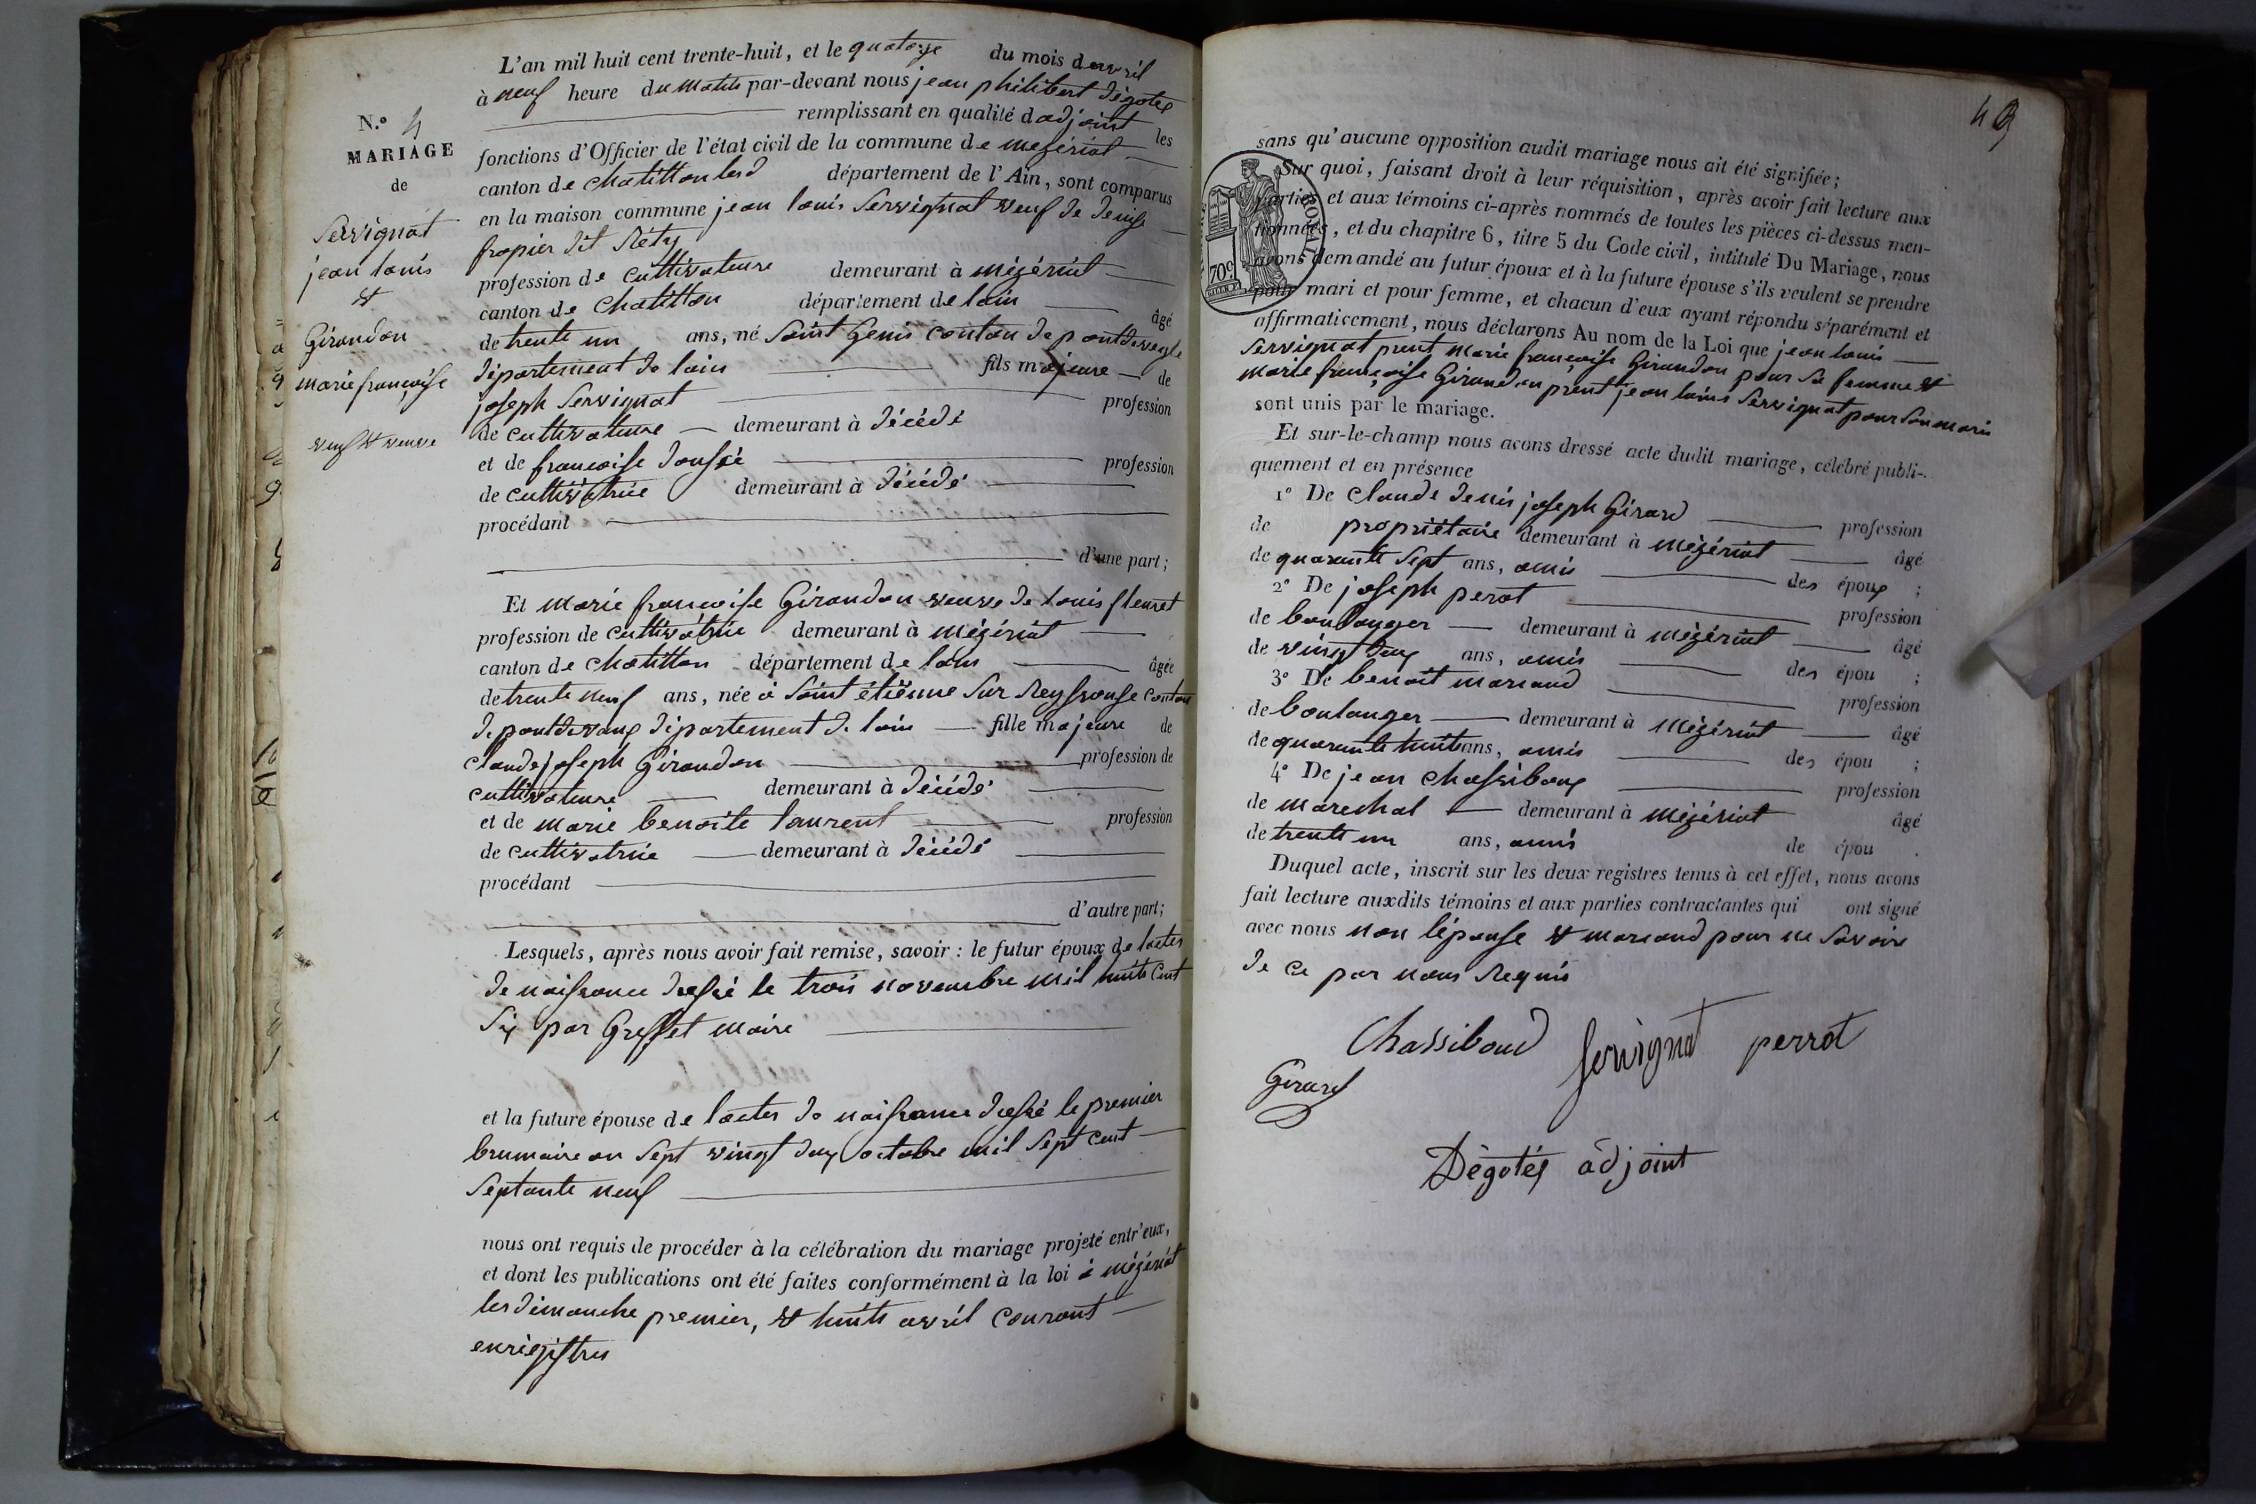 L'an mil huit cent trente-huit, et le quatorze du mois davril
à neuf heure du matin par-devant nous jean philibert Dégotex
remplissant en qualité dadjoint les
N.º 4
MARIAGE
de
Servignat
jean louis
et
Girandon
marie françoise
veuf et veuve
fonctions d'Officier de l'état civil de la commune de mezériat
canton de chatillon les d département de l'Ain, sont comparus
en la maison commune jean louis Servignat veuf de denise
fropier dit Réty
profession de cultivateure demeurant à mézériat
canton de chatillon département de lain âgé
de trente un ans, né Saint Genis canton de pontdeveyle
département de lain fils majeure de
joseph Servignat profession
de cultivateure demeurant à décédé
et de françoise doussé profession
de cultivatrice demeurant à décédé
procédant
d'une part;
Et marie françoise Girandon veuve de louis fleuret
profession de cultivatrice demeurant à mézériat
canton de chatillon département de lain âgée
de trente neuf ans, née à Saint étiënne Sur Reyssouse canton
de pontdevaux département de lain fille majeure de
claude joseph Girandon profession de
cultivateure demeurant à décédé
et de marie benoite laurent profession
de cultivatrice demeurant à décédé
procédant
d'autre part;
Lesquels, après nous avoir fait remise, savoir : le futur époux de lactes
de naissance dressé le trois novembre mil huits Cent
Six par Greffet maire
et la future épouse de lactes de naissance dressé le premier
brumaire an Sept vingt deux octobre mil Sept cent
Septante neuf
nous ont requis de procéder à la célébration du mariage projeté entr'eux,
et dont les publications ont été faites conformément à la loi à mézériat
les dimanche premier, et huits avril courant
enriegistres
49
sans qu'aucune opposition audit mariage nous ait été signifiée;
Sur quoi, faisant droit à leur réquisition, après avoir fait lecture aux
parties et aux témoins ci-après nommés de toutes les pièces ci-dessus men-
tionnées, et du chapitre 6, titre 5 du Code civil, intitulé Du Mariage, nous
avons demandé au futur époux et à la future épouse s'ils veulent se prendre
pour mari et pour femme, et chacun d'eux ayant répondu séparément et
affirmativement, nous déclarons Au nom de la Loi que jean louis
ROYAL
70c.
Servignat prent marie françoise Girandon pour Sa femme et
marie françoise Girandon prent jean louis Servignat pour Son maris
sont unis par le mariage.
Et sur-le-champ nous avons dressé acte dudit mariage, célébré publi-
quement et en présence
1º De claude denis joseph Girard profession
de propriétaire demeurant à mézériat âgé
de quarante Sept ans, amis des époux ;
2º De joseph perot profession
de boulanger demeurant à mézériat âgé
de vingt deux ans, amis des épou ;
3º De benoit marand profession
de boulanger demeurant à mézériat âgé
de quarante huits ans, amis des épou ;
4º De jean chassiboux profession
de marechal demeurant à mézériat âgé
de trente un ans, amis de épou .
Duquel acte, inscrit sur les deux registres tenus à cet effet, nous avons
fait lecture auxdits témoins et aux parties contractantes qui ont signé
avec nous non lépouse et marand pour ne Savoir
de ce par nous Requis
Chassiboud Servignat perrot
Girard
Dégotéx adjoint